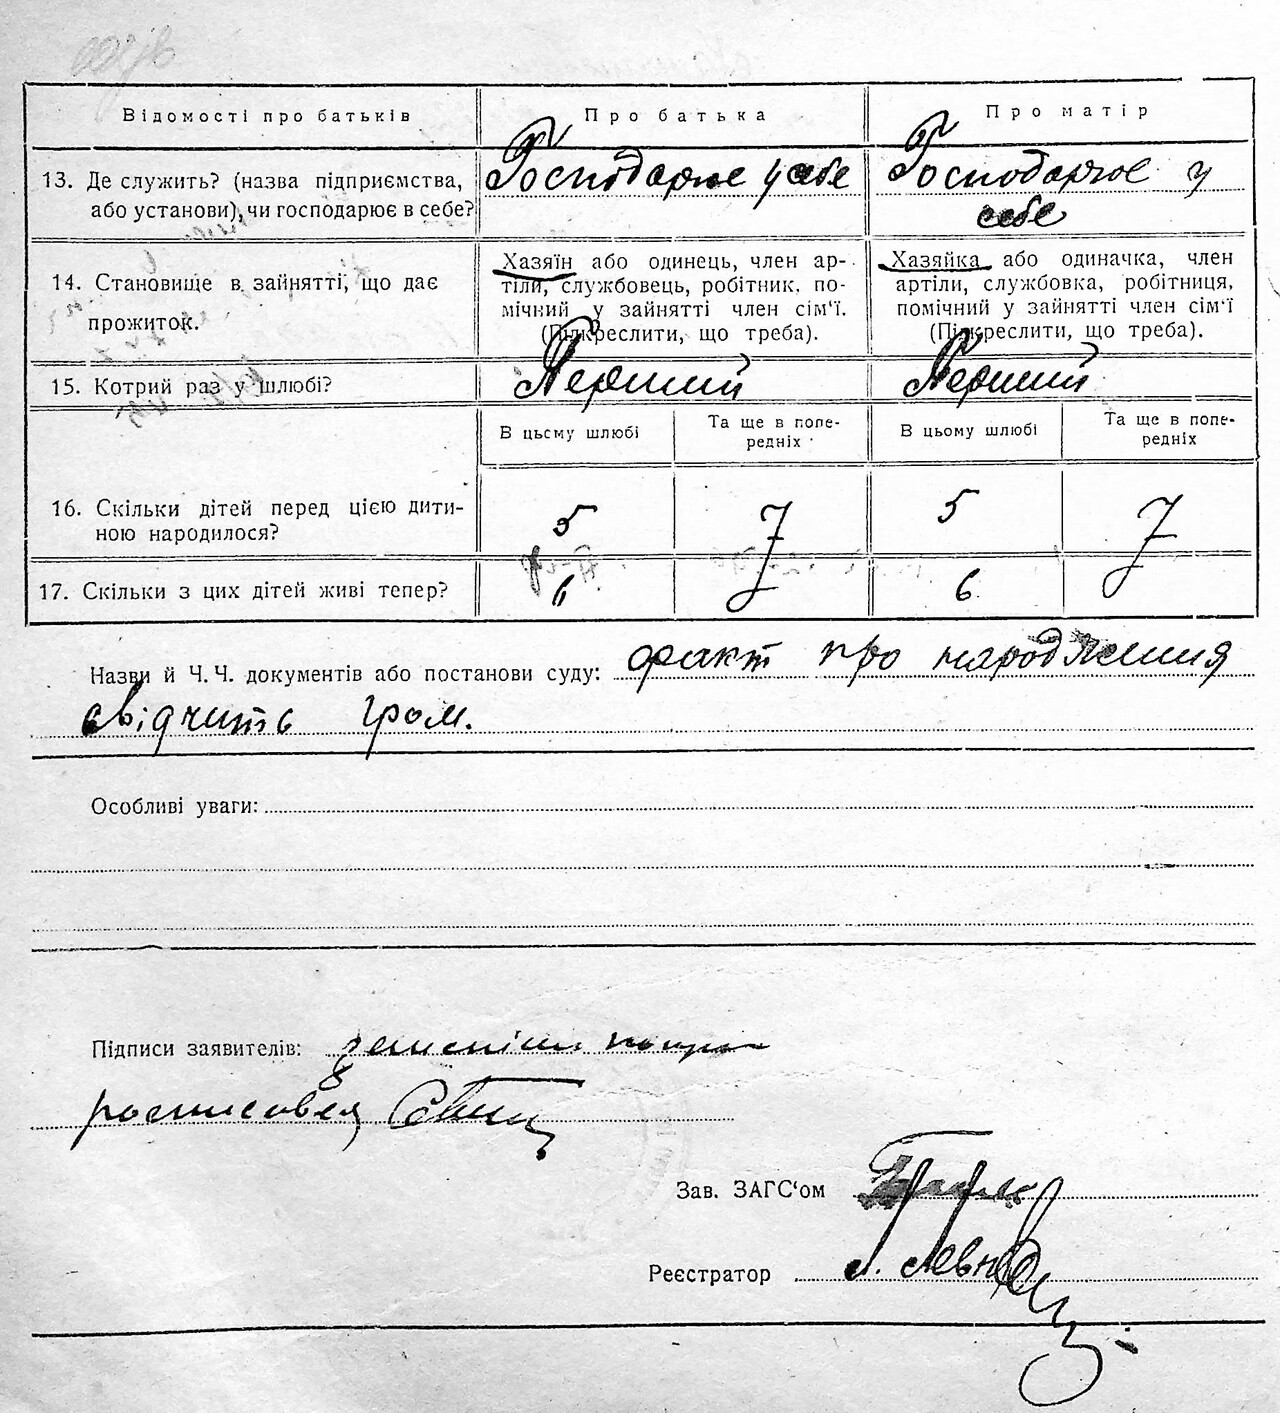 Відомості про батьків
Про батька
Про матір
13. Де служить? (назва підприємства,
або установи), чи господарює в себе?
Господарює у себе
Господарює у
себе
14. Становище в зайнятті, що дає
прожиток.
Хазяїн або одинець, член ар-
тіли, службовець, робітник, по-
мічний у зайнятті член сім'ї.
(Підкреслити, що треба).
Хазяйка або одиначка, член
артіли, службовка, робітниця,
помічний у зайнятті член сім'ї
(Підкреслити, що треба).
15. Котрий раз у шлюбі?
Перший
Перший
В цьому шлюбі
Та ще в попе-
редніх
В цьому шлюбі
Та ще в попе-
редніх
16. Скільки дітей перед цією дити-
ною народилося?
5
5
17. Скільки з цих дітей живі тепер?
6
6
Назви й Ч. Ч. документів або постанови суду: факт про народження
свідчить гром.
Особливі уваги:
Підписи заявителів:
Зав. ЗАГС'ом
Реєстратор